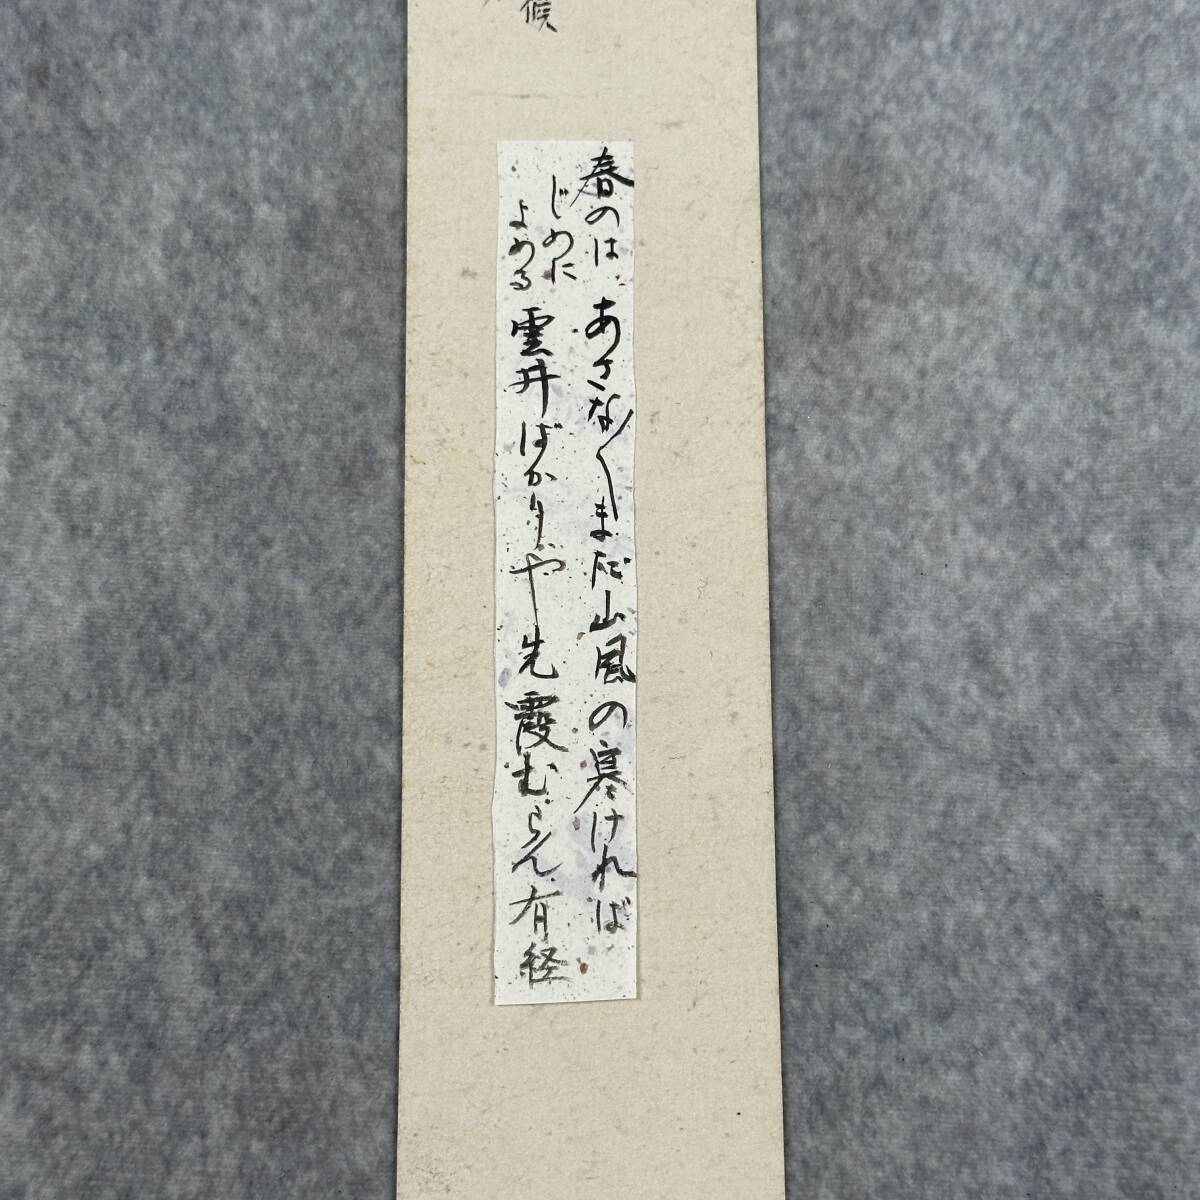 候
春のは
じめに
よめる
あさな〱まだ山風の寒ければ
雲井ばかりや先霞むらん 有経